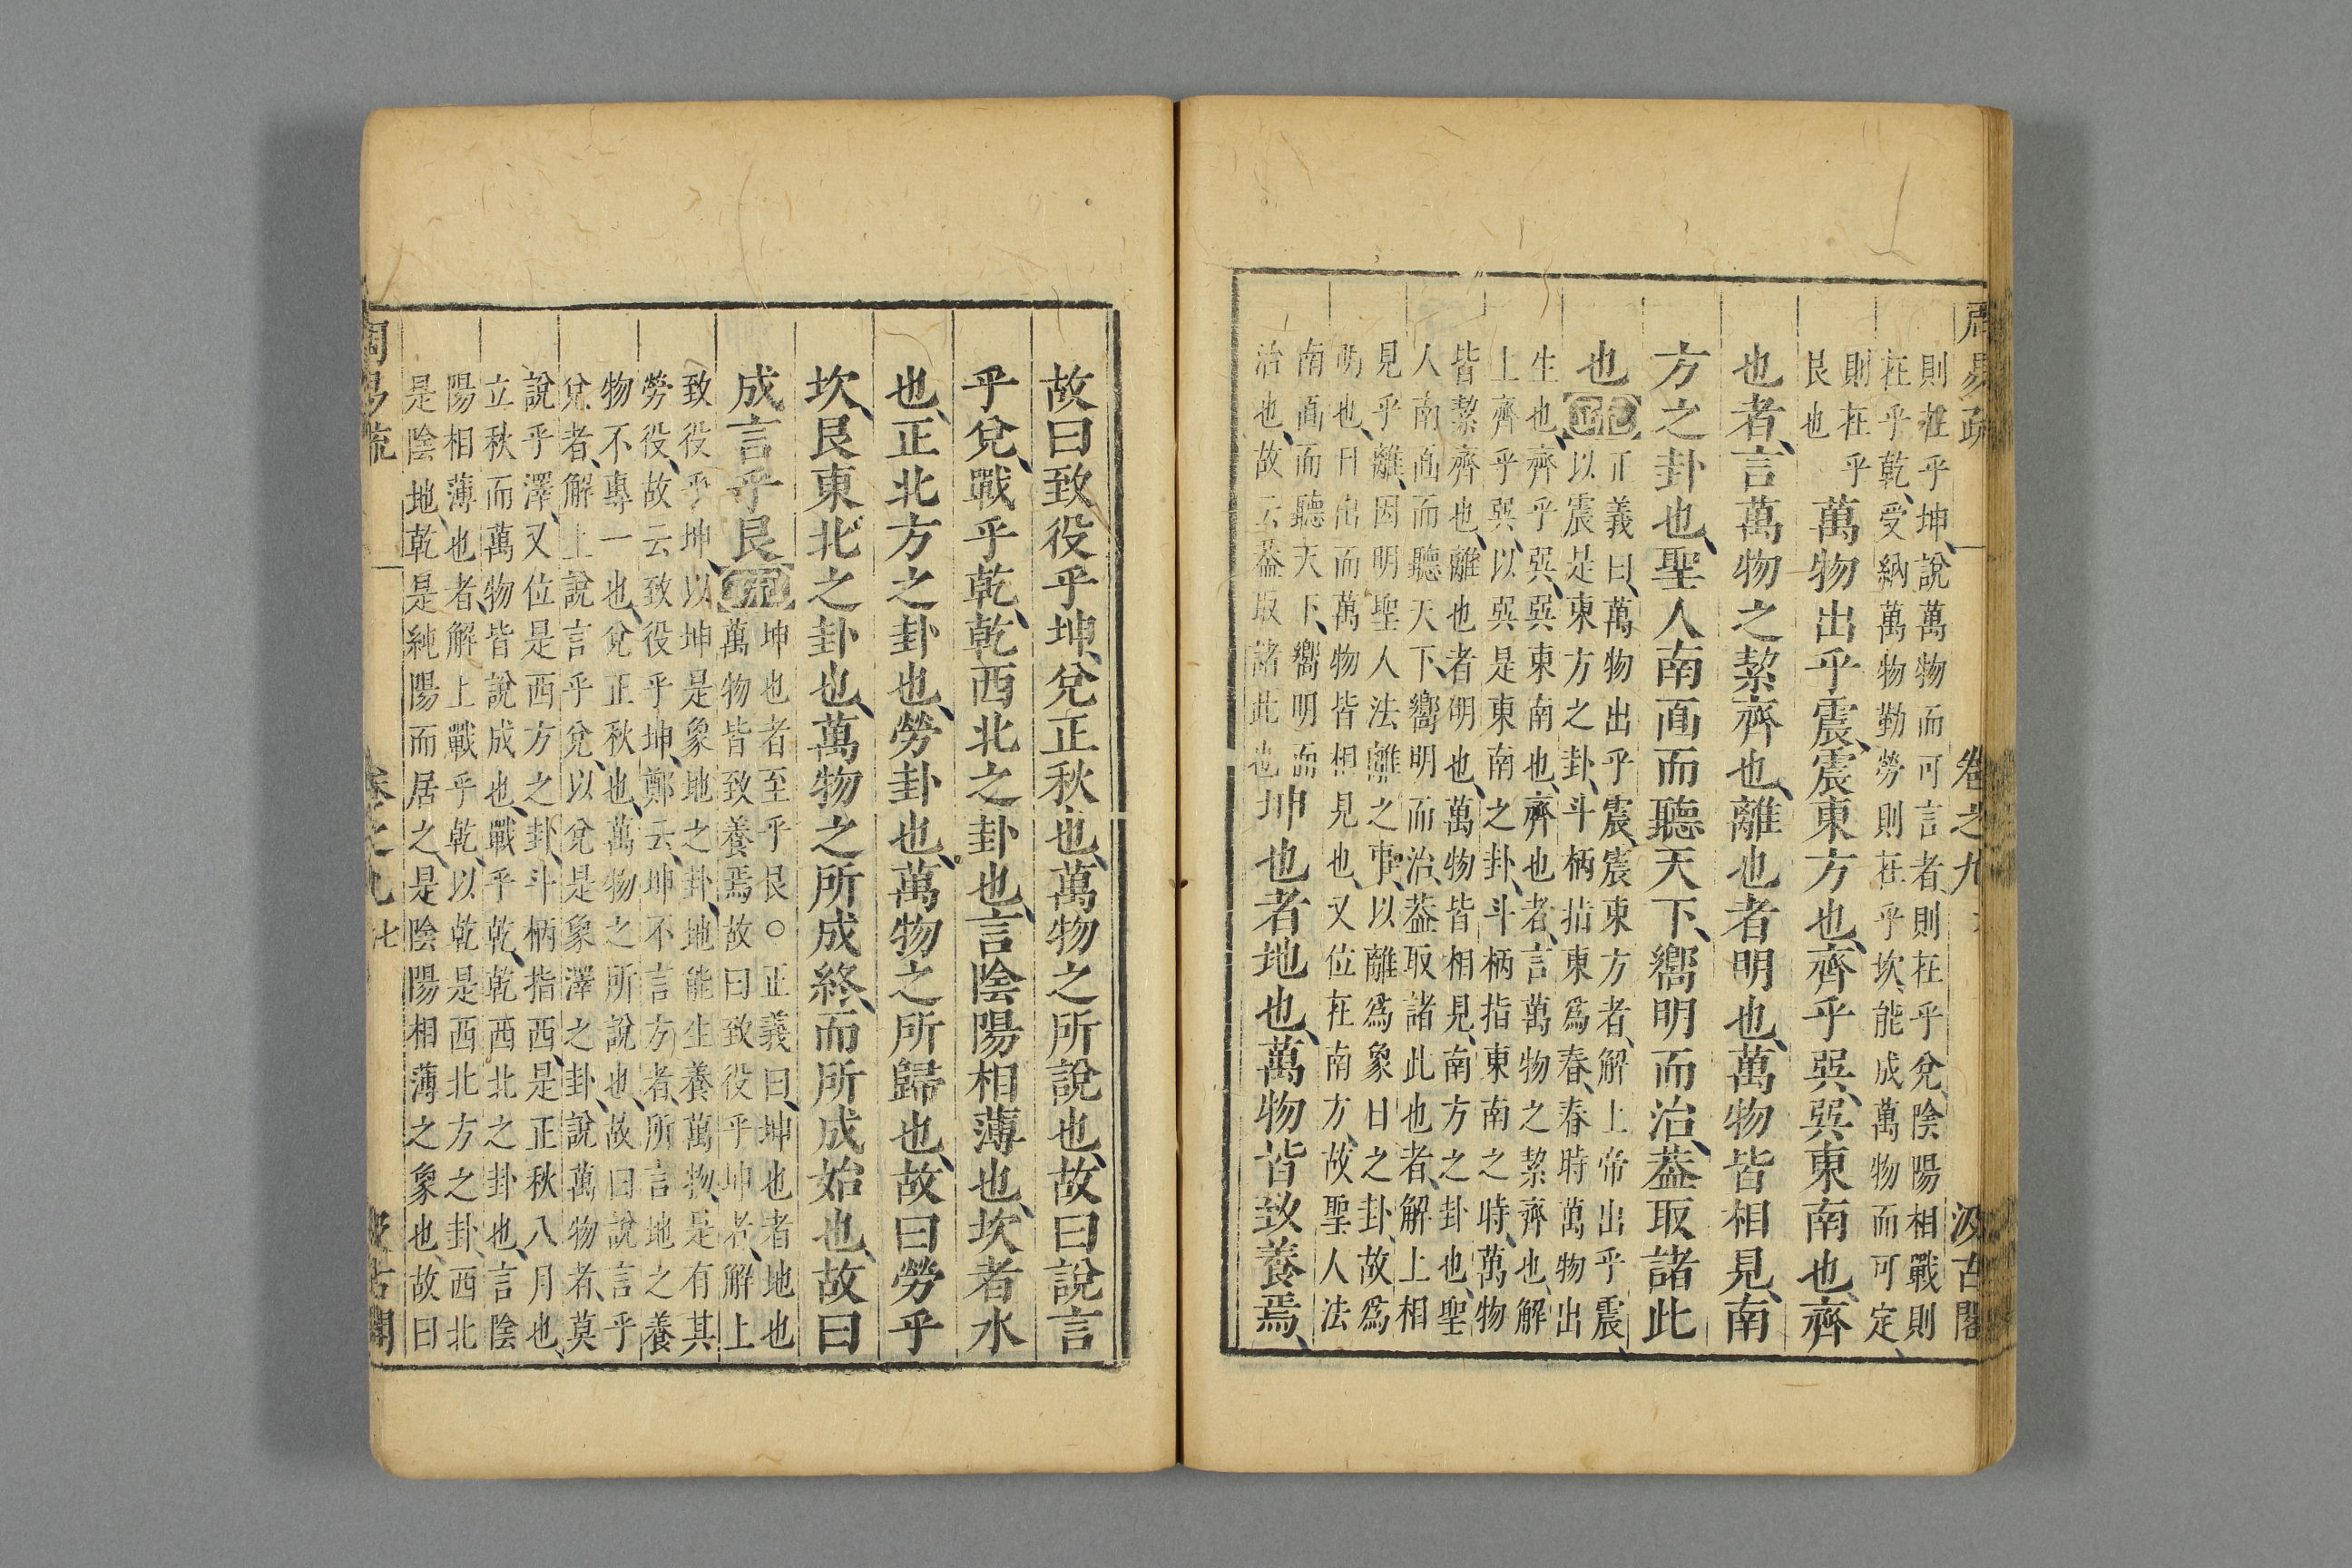 周易疏 卷之九 汲古閣
則在乎坤說萬物而可言者則在乎兌陰陽相戰則
在乎乾受納萬物勤勞則在乎坎能成萬物而可定
則在乎
艮也
萬物出乎震震東方也齊乎巽巽東南也齊
也者言萬物之絜齊也離也者明也萬物皆相見南
方之卦也聖人南面而聽天下嚮明而治蓋取諸此
也
疏
正義曰萬物出乎震震東方者解上帝出乎震
以震是東方之卦斗柄指東爲春春時萬物出
生也齊乎巽巽東南也齊也者言萬物之絜齊也解
上齊乎巽以巽是東南之卦斗柄指東南之時萬物
皆絜齊也離也者明也萬物皆相見南方之卦也聖
人南面而聽天下嚮明而治蓋取諸此也者解上相
見乎離因明聖人法離之事以離爲象日之卦故爲
明也日出而萬物皆相見也又位在南方故聖人法
南面而聽天下嚮明而
治也故云蓋取諸此也
坤也者地也萬物皆致養焉
故曰致役乎坤兌正秋也萬物之所說也故曰說言
乎兌戰乎乾乾西北之卦也言陰陽相薄也坎者水
也正北方之卦也勞卦也萬物之所歸也故曰勞乎
坎艮東北之卦也萬物之所成終而所成始也故曰
成言乎艮
疏
坤也者至乎艮○正義曰坤也者地也
萬物皆致養焉故曰致役乎坤者解上
致役乎坤以坤是象地之卦地能生養萬物是有其
勞役故云致役乎坤鄭云坤不言方者所言地之養
物不專一也兌正秋也萬物之所說也故曰說言乎
兌者解上說言乎兌以兌是象澤之卦說萬物者莫
說乎澤又位是西方之卦斗柄指西是正秋八月也
立秋而萬物皆說成也戰乎乾乾西北之卦也言陰
陽相薄也者解上戰乎乾以乾是西北方之卦西北
是陰地乾是純陽而居之是陰陽相薄之象也故曰
周易疏 卷之九 七 汲古閣